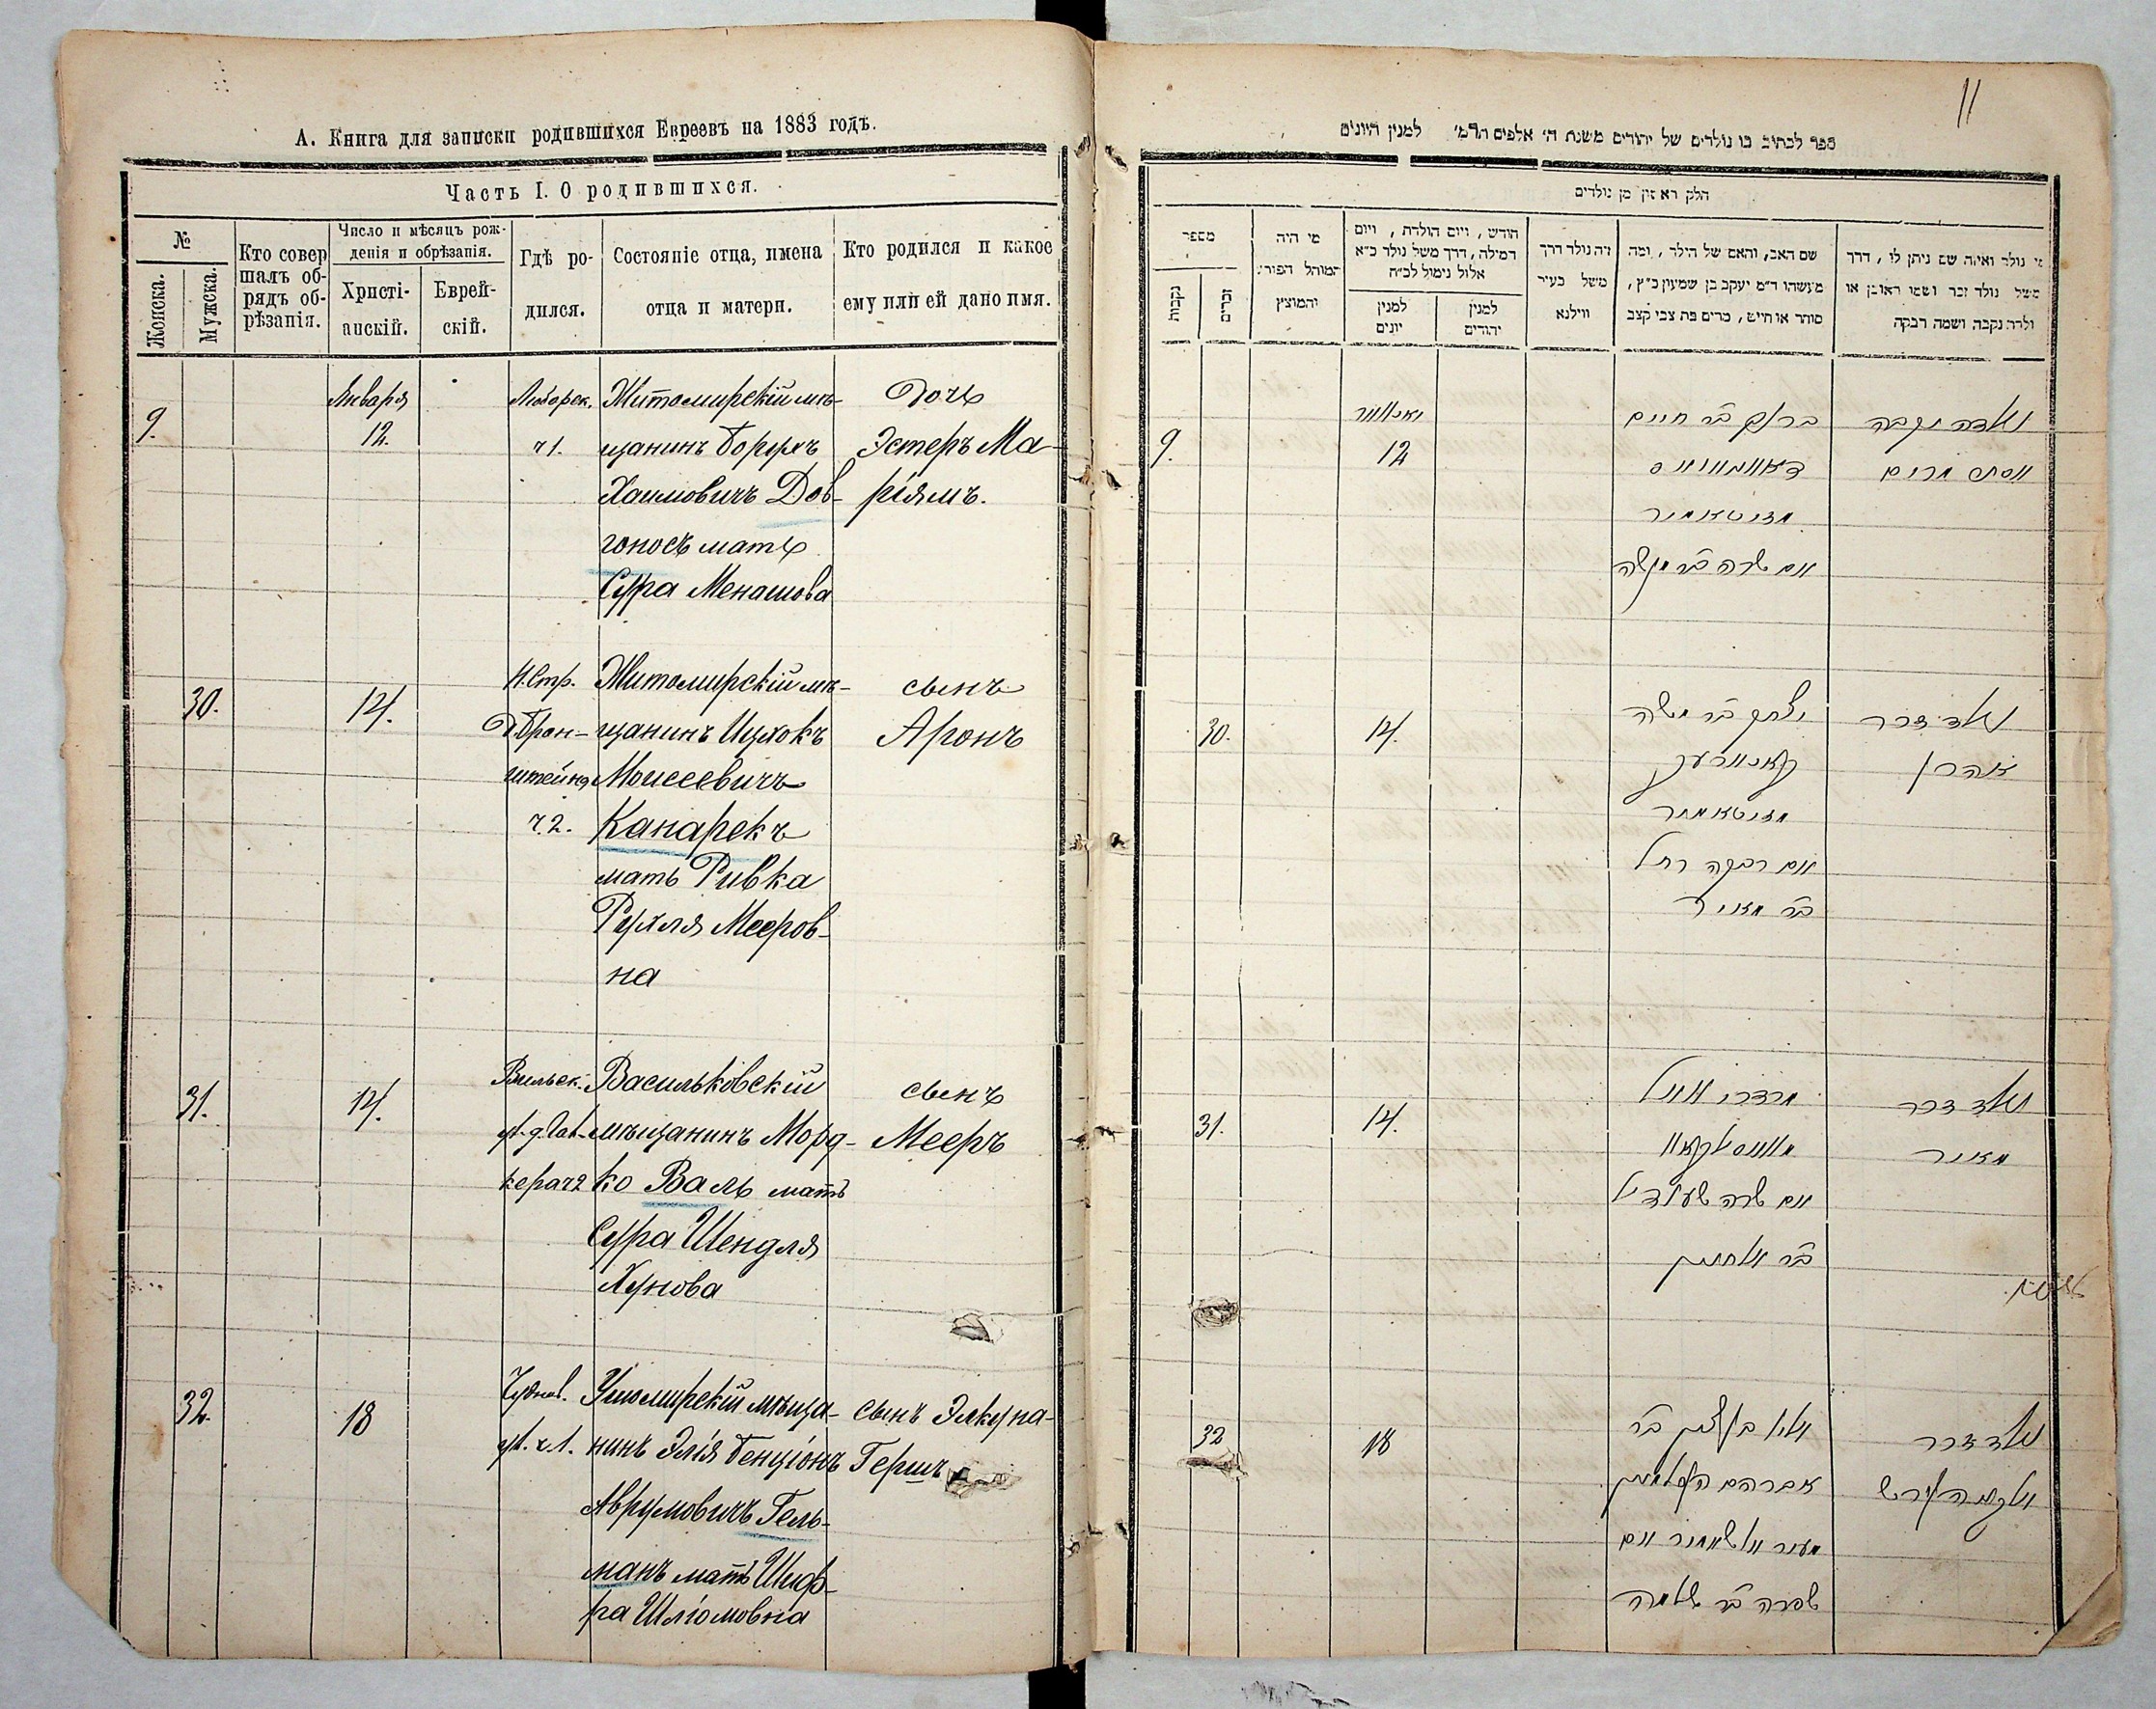 А. Книга для записки родившихся Евреевъ на 1883 годъ.
Часть I. О родившихся.
№
Женска.
Мужска.
Кто совер
шалъ об-
рядъ об-
рѣзанія.
Число и мѣсяцъ рож-
денія и обрѣзанія.
Христі-
анскій.
Еврей-
скій.
Гдѣ ро-
дился.
Состояніе отца, имена
отца и матери.
Кто родился и какое
ему или ей дано имя.
9.
Января
12.
ч1.
Житомирскій мѣ-
щанинъ Борухъ
Хаимовичъ Дов-
гоносъ мать
Сура Менашова
Дочь
Эстеръ Ма-
ріямъ.
30.
14.
Н.Стр.
Д Брон-
штейна
ч.2.
Житомирскій мѣ-
щанинъ Ицхокъ
Моисеевичъ
Канарекъ
мать Ривка
Рухля Мееров-
на
сынъ
Аронъ
31.
14.
Вильск.
Васильковскій
мѣщанинъ Морд-
ко Валь мать
Сура Шендля
Хунова
сынъ
Мееръ
32.
18
Чуднов.
ул. ч.1.
Ушомирскій мѣща-
нинъ Элія Бенціонъ
Аврумовичъ Гель-
манъ мать Шиф-
ра Шліомовна
сынъ Элкуна-
Гершъ
11
ספר לכתוב בו נולדים של יהודים משנת ה' אלפים תרמ' למנין היונים
חלק ראשון מן נולדים
מספר
נקבות
זכרים
מי היה
המוהל הפורע
והמוצץ
חודש, ויום הולדת, ויום
המילה, דרך משל נולד כ"א
אלול נימול לכ"ח
למנין
יונים
למנין
יהודים
זה נולד דרך
משל בעיר
ווילנא
שם האב, והאם של הילד, ומה
מעשהו ד"מ יעקב בן שמעון כ"ץ,
סוחר או חייט, מרים בת צבי קצב
מי נולד ואיזה שם ניתן לו, דרך
משל נולד זכר ושמו ראובן או
ולדה נקבה ושמה רבקה
9.
יאנואר
12
ברוך בר חיים
מזיטאמיר
אם שרה בר מנשה
נולדה נקבה
אסתר מרים
30.
14.
יצחק בר משה
קאנארעק
מזיטאמיר
אם רבקה רחל
בר מאיר
נולד זכר
אהרן
31.
14.
מרדכי וואל
אם שרה שענדיל
נולד זכר
מאיר
32
18
אליו בן ציון בר
אברהם העלמאן
שפרה בר שלמה
נולד זכר
אלקנה הירש